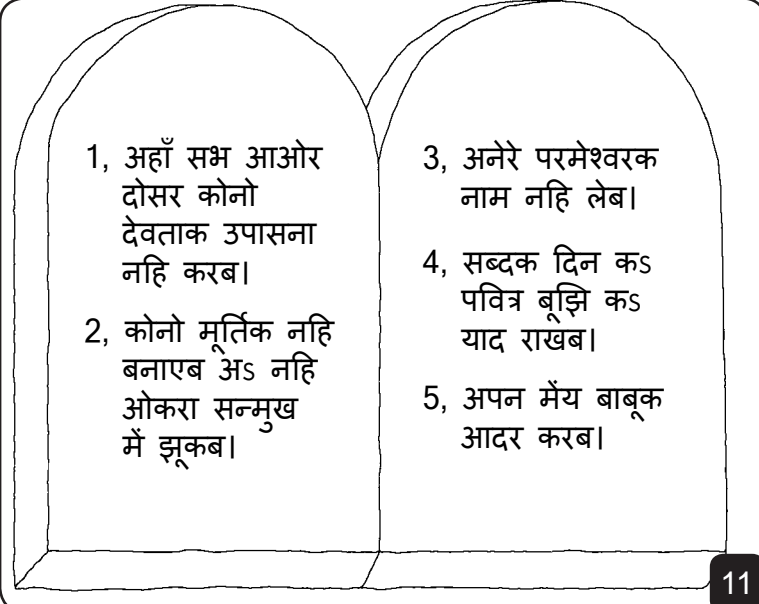 1, अहाँ सभ आओर
दोसर कोनो
देवताक उपासना
नहि करब।
2, कोनो मूर्तिक नहि
बनाएब अs नहि
ओकरा सन्मुख
में झूकब।
3, अनेरे परमेश्वरक
नाम नहि लेब।
4, सब्दक दिन कs
पवित्र बूझि कs
याद राखब।
5, अपन मेंय बाबूक
आदर करब।
11